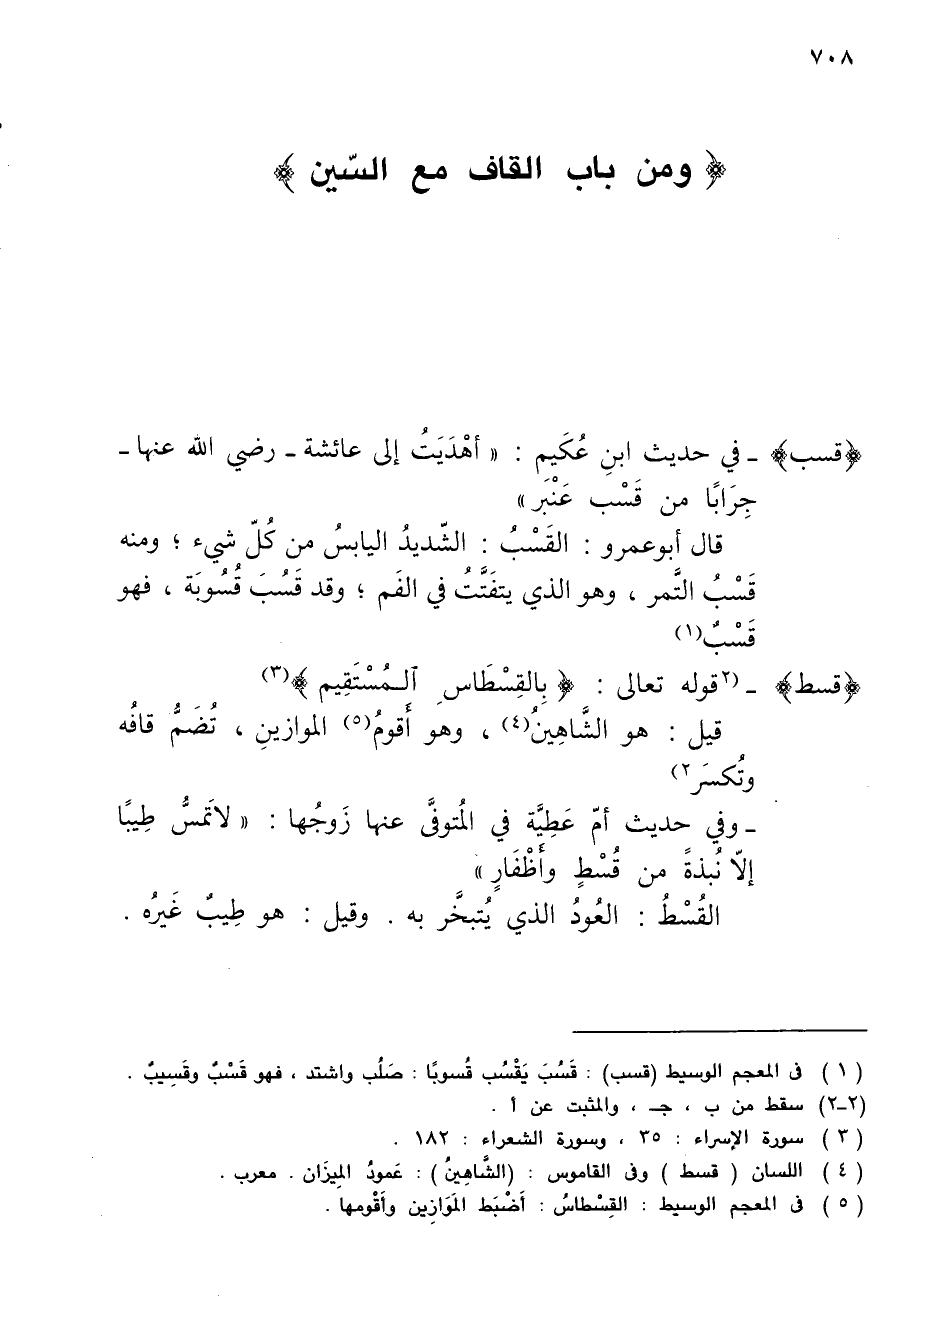 ٧٠٨
﴿ ومن باب القاف مع السّين ﴾
﴿قسب﴾ ـ في حديث ابنِ عُكَيم : « أهْدَيَتُ إلى عائشة ـ رضي الله عنها ـ
جِرَابًا من قَسْب عَنْبَر »
قال أبوعمرو : القَسْبُ : الشّديدُ اليابسُ من كُلّ شيء ؛ ومنه
قَسْبُ التَّمر ، وهو الذي يتفَتَّتُ في الفَم ؛ وقد قَسُبَ قُسُوبَة ، فهو
قَسْبٌ(١)
﴿قسط﴾ ـ (٢قوله تعالى : ﴿ بِالقِسْطَاسِ ٱلـمُسْتَقِيم ﴾(٣)
قيل : هو الشَّاهِينُ(٤) ، وهو أَقومُ(٥) الموازينِ ، تُضَمُّ قافُه
وتُكسَر٢)
ـ وفي حديث أمّ عَطِيَّة في المُتوفَّى عنها زَوجُها : « لاتَمسُّ طِيبًا
إلاّ نُبذةً من قُسْطٍ وأَظْفَارٍ »
القُسْطُ : العُودُ الذي يُتبخَّر به . وقيل : هو طِيبٌ غَيرُه .
( ١ ) فى المعجم الوسيط (قسب) : قَسُبَ يَقْسُب قُسوبًا : صَلُب واشتد ، فهو قَسْبٌ وقَسِيبٌ .
(٢-٢) سقط من ب ، جـ ، والمثبت عن أ .
( ٣ ) سورة الإسراء : ٣٥ ، وسورة الشعراء : ١٨٢ .
( ٤ ) اللسان ( قسط ) وفى القاموس : (الشَّاهِينُ ) : عَمودُ المِيزَان . معرب .
( ٥ ) فى المعجم الوسيط : القِسْطاسُ : أَضْبَط المَوَازِين وأَقْومها .